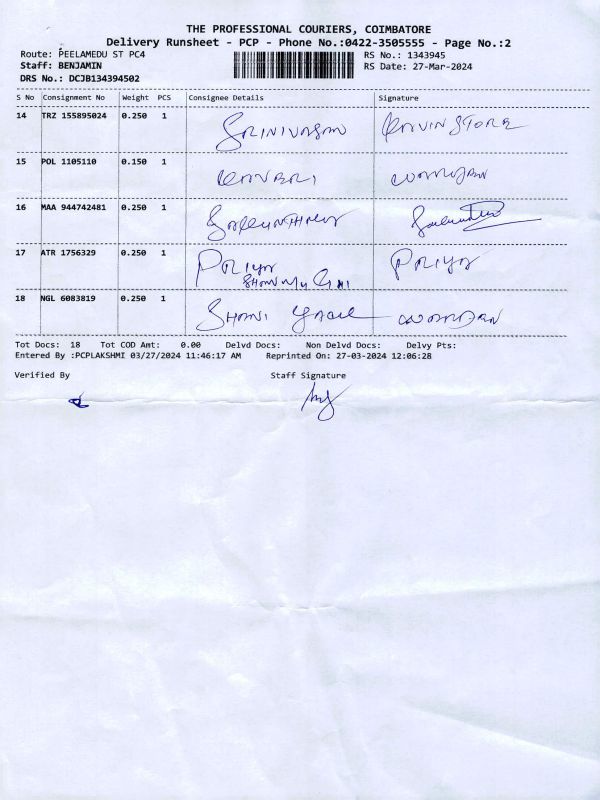 THE PROFESSIONAL COURIERS, COIMBATORE
Delivery Runsheet - PCP - Phone No.:0422-3505555 - Page No.:2
Route: PEELAMEDU ST PC4 RS No.: 1343945
Staff: BENJAMIN RS Date: 27-Mar-2024
DRS No.: DCJB134394502
S No Consignment No Weight PCS Consignee Details Signature
14 TRZ 155895024 0.250 1 SRINIVASAN KAVIN STORE
15 POL 1105110 0.150 1
16 MAA 944742481 0.250 1
17 ATR 1756329 0.250 1 PRIYA PRIYA
18 NGL 6083819 0.250 1 SHANI
Tot Docs: 18 Tot COD Amt: 0.00 Delvd Docs: Non Delvd Docs: Delvy Pts:
Entered By :PCPLAKSHMI 03/27/2024 11:46:17 AM Reprinted On: 27-03-2024 12:06:28
Verified By Staff Signature